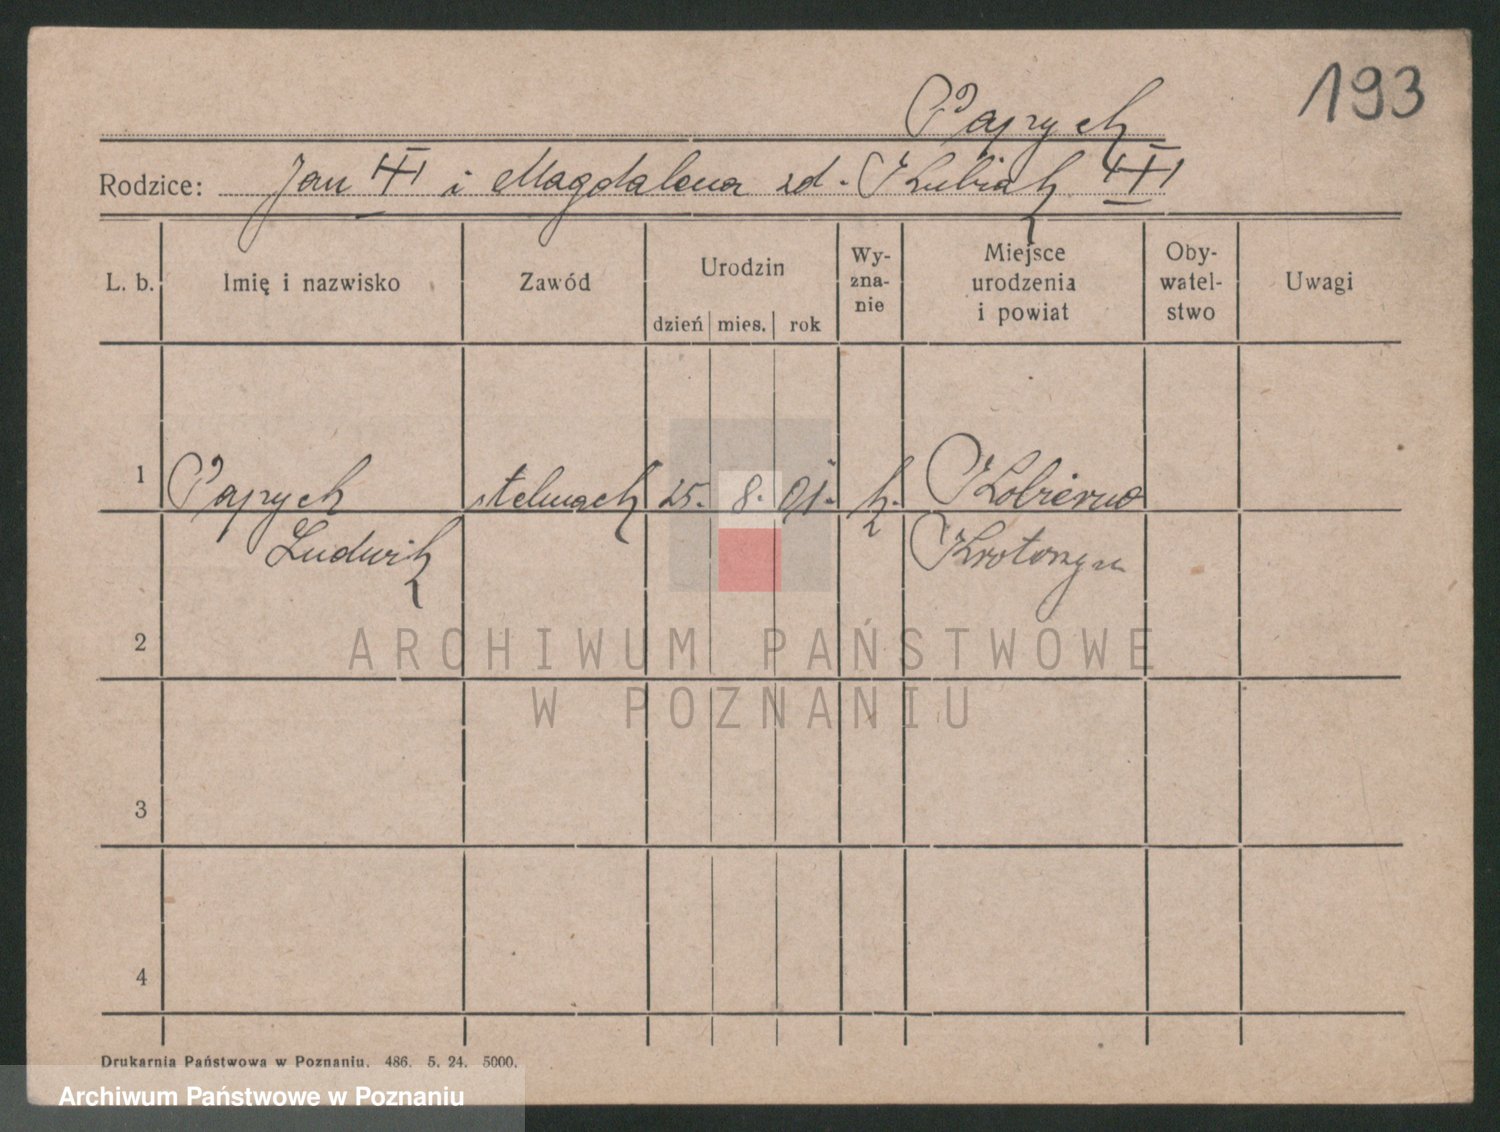 193
Paprych
Rodzice: Jan i Magdalena zd. Kubiak
L. b. Imię i nazwisko Zawód Urodzin dzień mies. rok Wy-zna-nie Miejsce urodzenia i powiat Oby-watel-stwo Uwagi
1 Paprych stelmach 25. 8. 01. k. Kobierno
Ludwik Krotoszyn
2
ARCHIWUM PAŃSTWOWE
W POZNANIU
3
4
Drukarnia Państwowa w Poznaniu. 486. 5. 24. 5000.
Archiwum Państwowe w Poznaniu